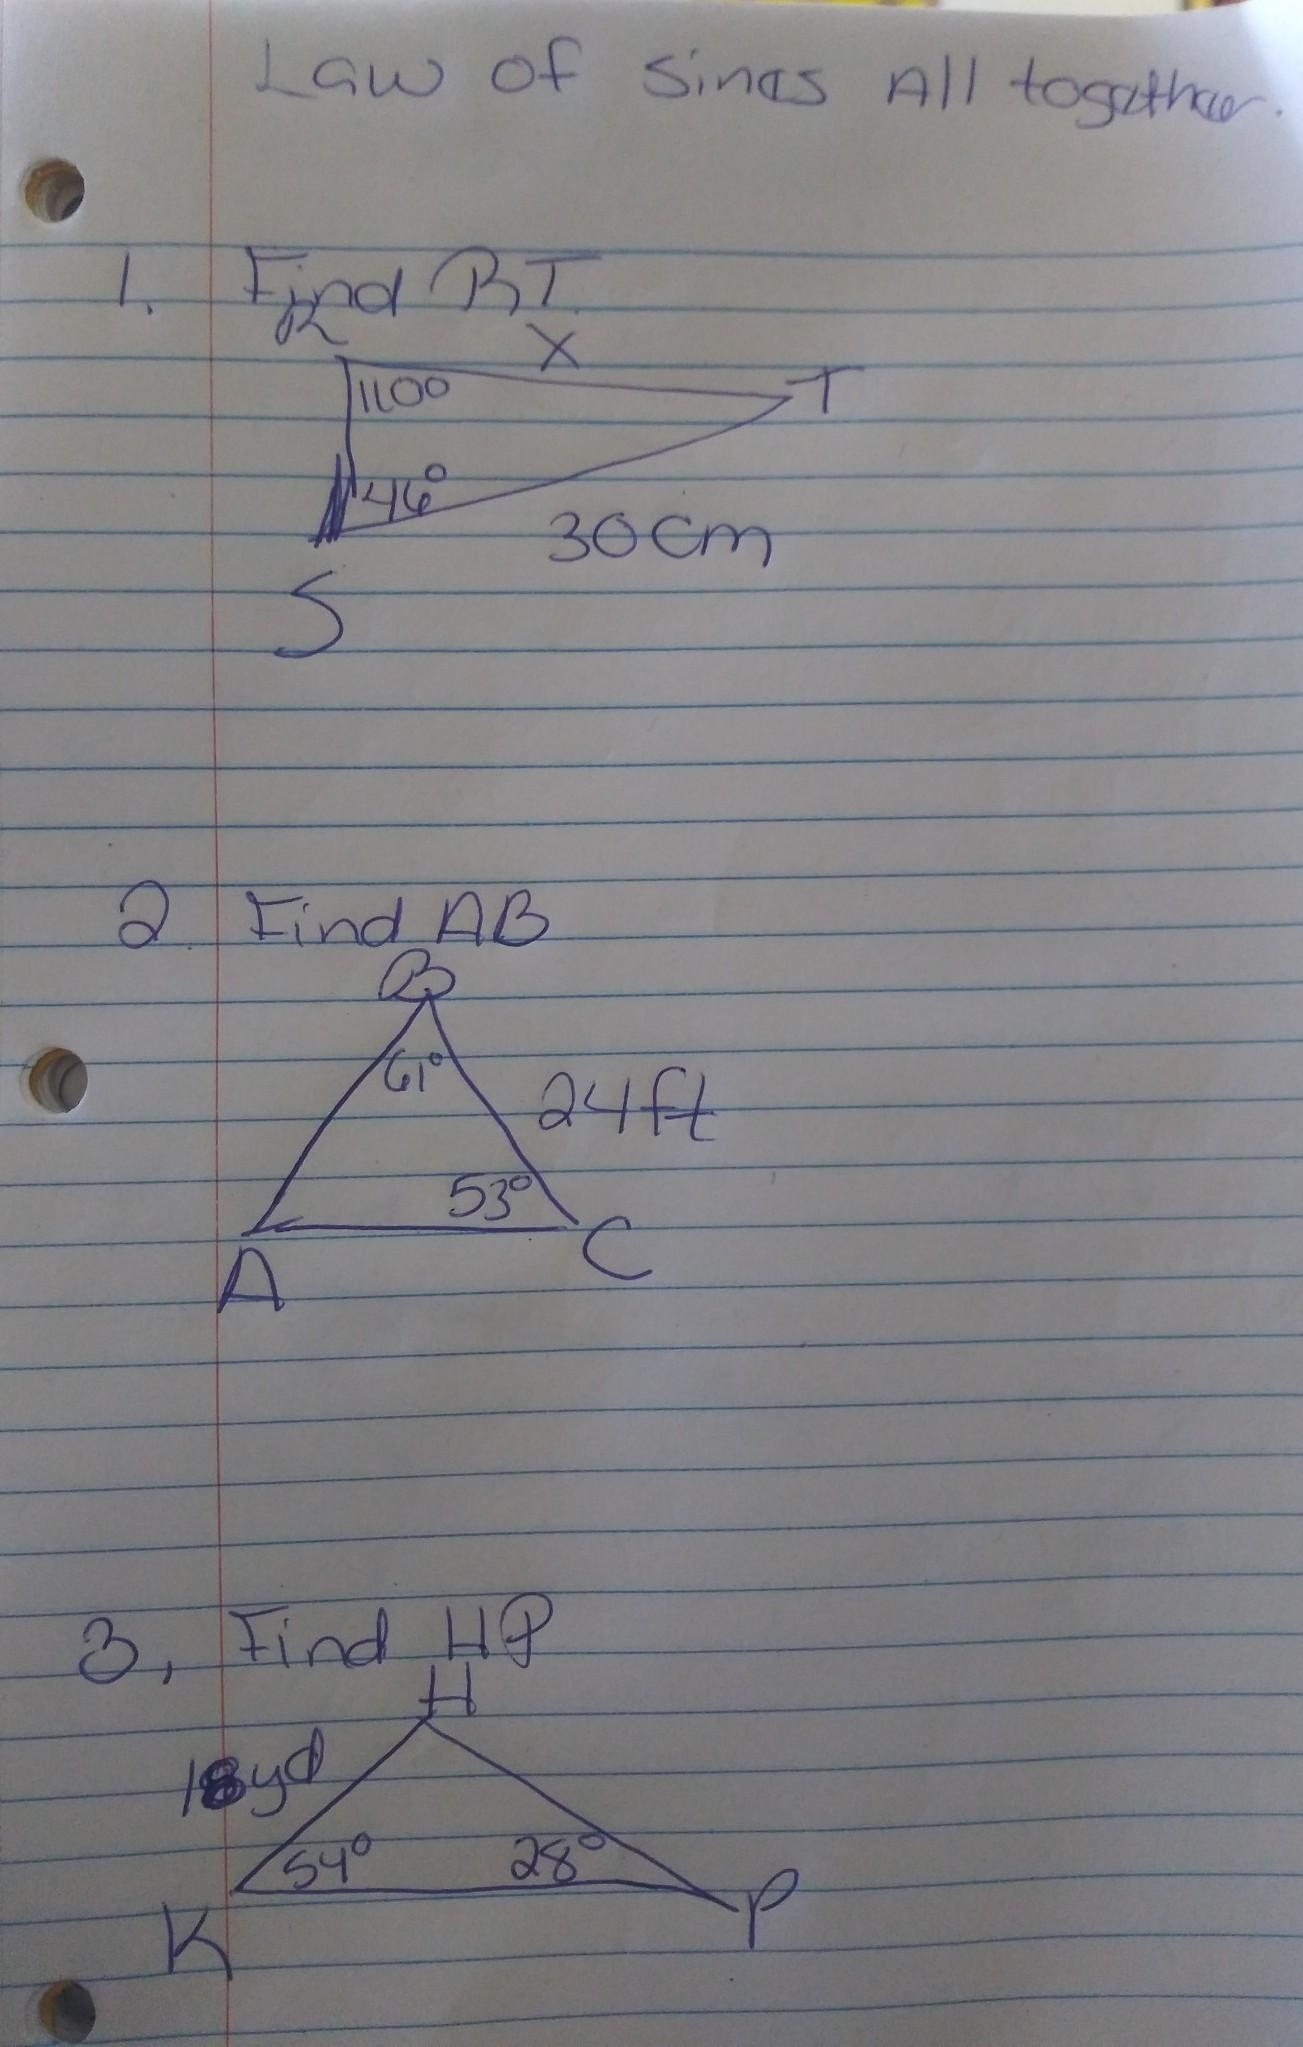 Law of Sines All together.
1. Find RT
R
X
110°
T
46°
30cm
S
2. Find AB
B
61°
24ft
53°
A
C
3, Find HP
H
18yd
54°
28°
K
P